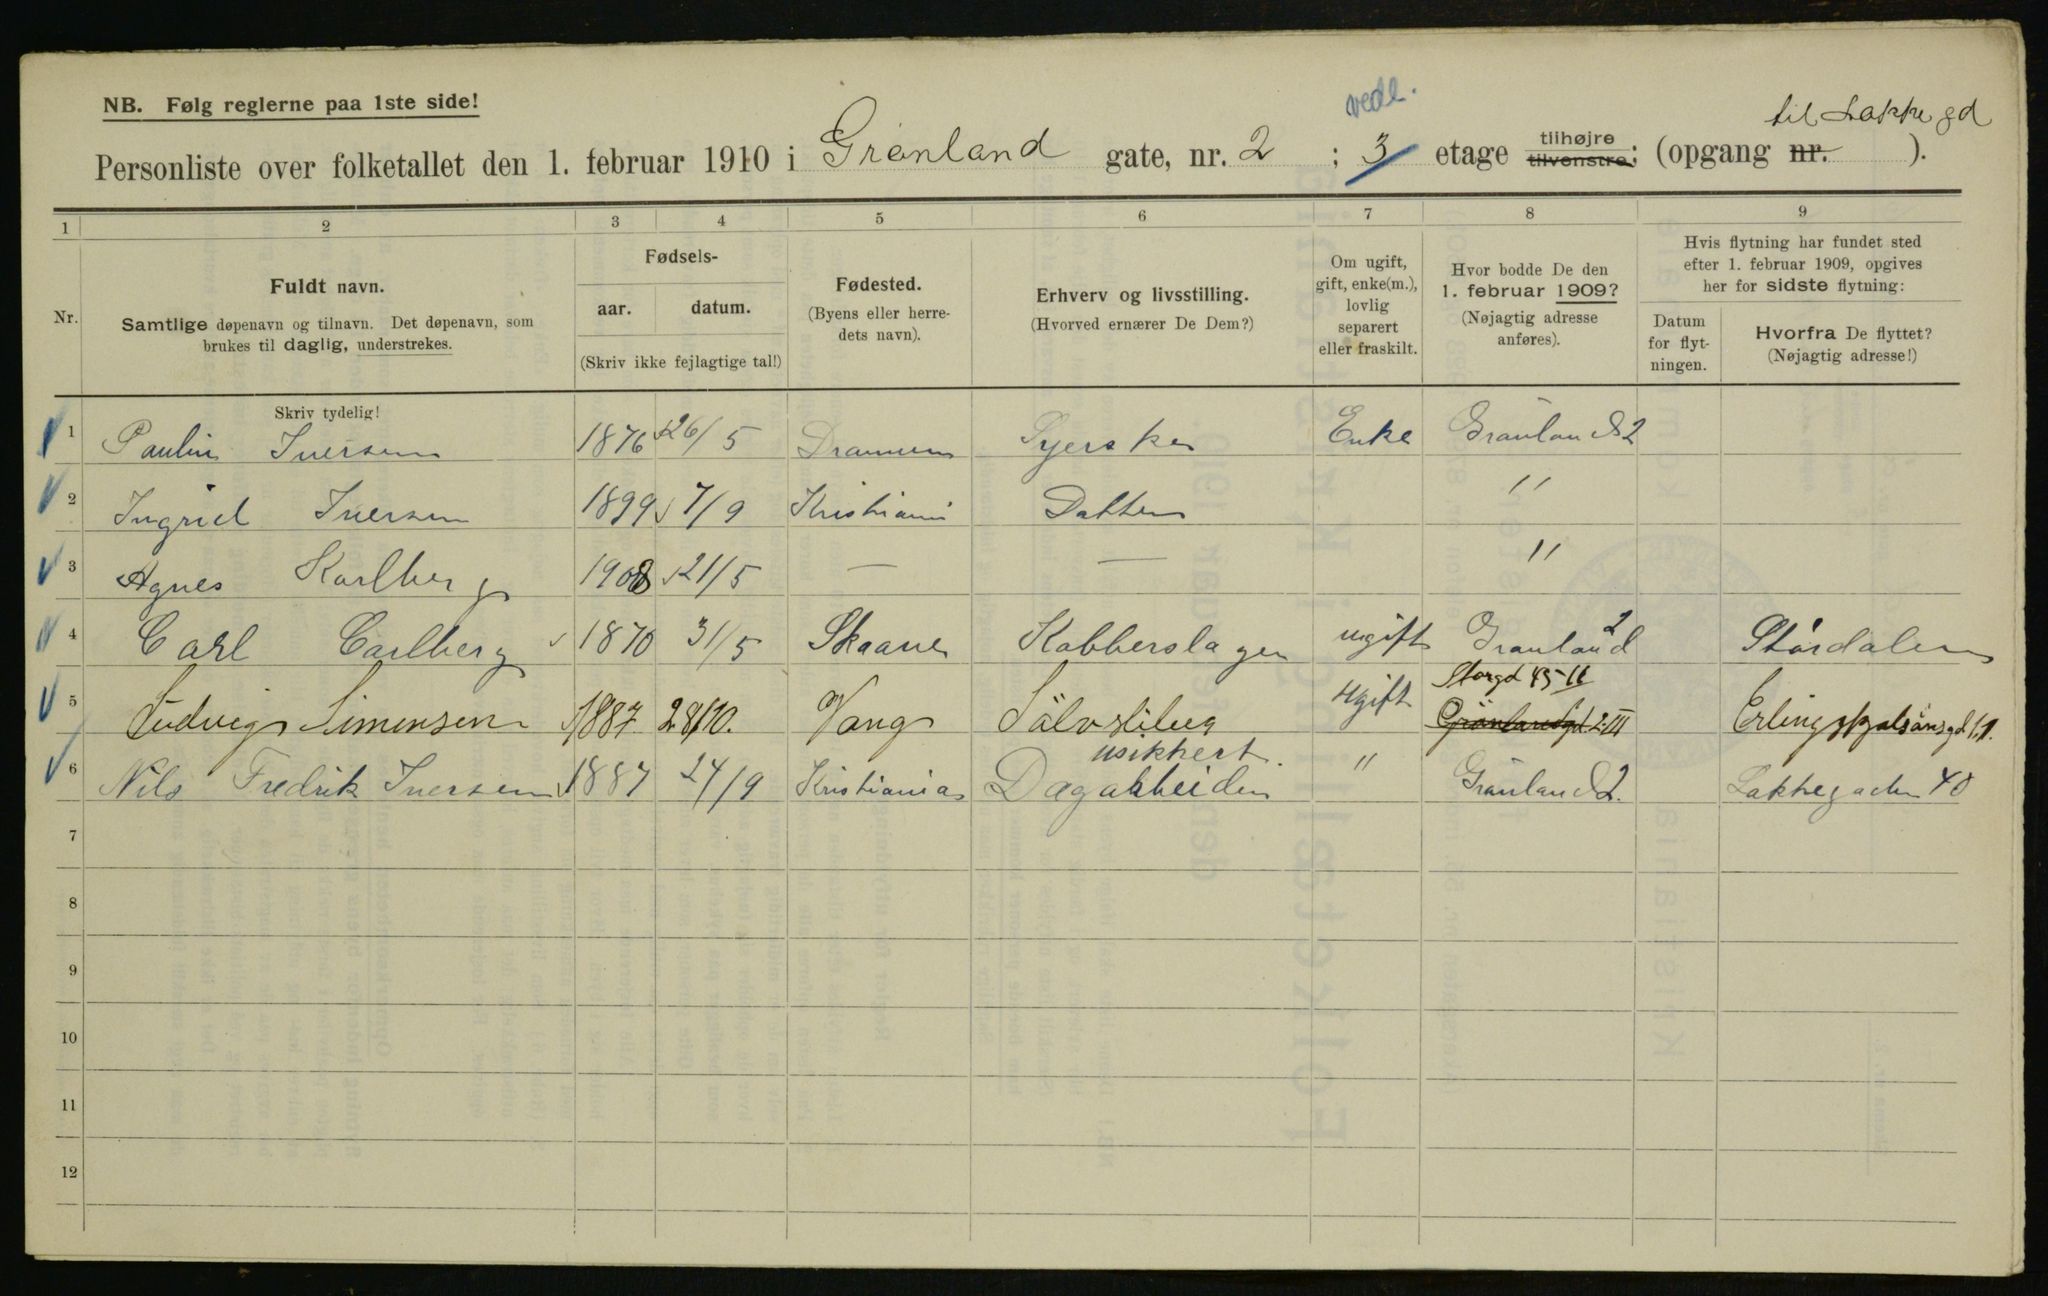 NB. Følg reglerne paa 1ste side!
vedl.
til Lakkegd
Personliste over folketallet den 1. februar 1910 i Grønland gate, nr. 2 ; 3 etage tilhøjre tilvenstre; (opgang nr. ).
1 2 3 4 5 6 7 8 9
Nr.
Fuldt navn.
Samtlige døpenavn og tilnavn. Det døpenavn, som
brukes til daglig, understrekes.
Fødsels-
aar. datum.
(Skriv ikke fejlagtige tal!)
Fødested.
(Byens eller herre-
dets navn).
Erhverv og livsstilling.
(Hvorved ernærer De Dem?)
Om ugift,
gift, enke(m.),
lovlig
separert
eller fraskilt.
Hvor bodde De den
1. februar 1909?
(Nøjagtig adresse
anføres).
Hvis flytning har fundet sted
efter 1. februar 1909, opgives
her for sidste flytning:
Datum
for flyt-
ningen.
Hvorfra De flyttet?
(Nøjagtig adresse!)
Skriv tydelig!
1 Paulin Iversen 1876 26/5 Drammen Syerske Enke Grønland 2
2 Ingrid Iversen 1899 7/9 Kristiania Datter "
3 Agnes Karlberg 1908 21/5 — — "
4 Carl Carlberg 1870 31/5 Skaane Kobberslager ugift Grønland 2 Stórdalen
5 Ludvig Simensen 1887 28/10. Vang ugift Storgd 45-II Grönlandsgd. 2-III Erling
6 Nils Fredrik Iversen 1887 24/9 Kristiania usikkert. Dagarbeider " Grønland 2. Lakkegaden 40
7
8
9
10
11
12